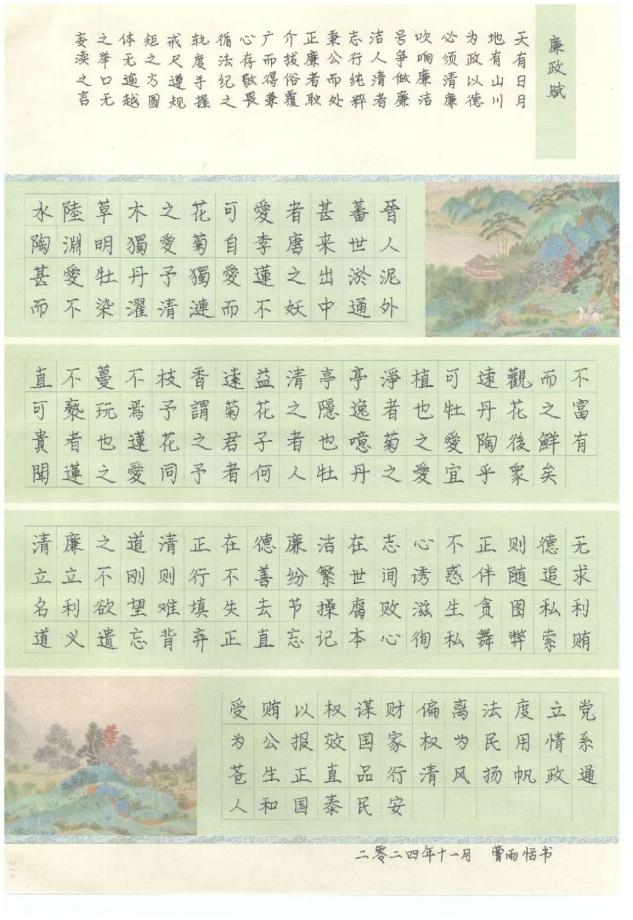 廉政赋
天有日月
地有山川
为政以德
必须清廉
吹响廉洁
号争做廉
洁人清者
志行纯粹
秉公而处
正廉者耿
介拔俗覆
广而得兼
心存敬畏
循法纪之
轨度手握
戒尺遵规
矩之方圆
体无逾越
之举口无
妄渎之言
水陸草木之花可愛者甚蕃晉
陶淵明獨愛菊自李唐来世人
甚愛牡丹予獨愛蓮之出淤泥
而不染濯清漣而不妖中通外
直不蔓不枝香遠益清亭亭淨植可遠觀而不
可褻玩焉予謂菊花之隱逸者也牡丹花之富
貴者也蓮花之君子者也噫菊之愛陶後鮮有
聞蓮之愛同予者何人牡丹之愛宜乎衆矣
清廉之道清正在德廉洁在志心不正则德无
立立不刚则行不善纷繁世间诱惑伴随追求
名利欲望难填失去节操腐败滋生贪图私利
道义遗忘背弃正直忘记本心徇私舞弊索贿
受贿以权谋财偏离法度立党
为公报效国家权为民用情系
苍生正直品行清风扬帆政通
人和国泰民安
二零二四年十一月 曹雨恬书